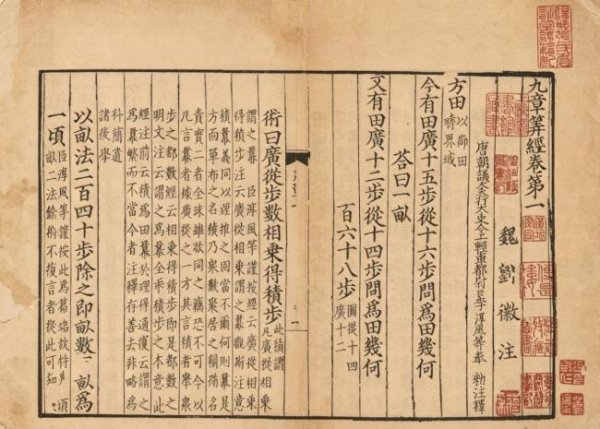 九章筭經卷第一
魏 劉徽 注
唐朝議大夫行太史令上輕車都尉臣李淳風等奉 勑注釋
方田 以御田疇界域
今有田廣十五步從十六步問爲田幾何
荅曰一畝
又有田廣十二步從十四步問爲田幾何
百六十八步 圖從十四廣十二
術曰廣從步數相乘得積步 此積謂凡廣從相乘
謂之冪 臣淳風等謹按經云廣從相乘
得積步注云廣從相乘謂之冪觀斯注意
積冪義同以理推之固當不爾何則冪是
方面單布之名積乃衆數聚居之稱循名
責實二者全殊雖欲同之竊恐不可今以
凡言冪者據廣從之一方其言積者舉衆
步之都數經云相乘得積步即是都數之
明文注云謂之爲冪全乖積步之本意此
經注前云積爲田冪於理得通復云謂之
爲冪繁而不當今者注釋存善去非略爲
料簡遺
諸後學
以畝法二百四十步除之即畝數畝爲
一頃 臣淳風等謹按此爲篇端故特頃
畝二法餘術不復言者從此可知